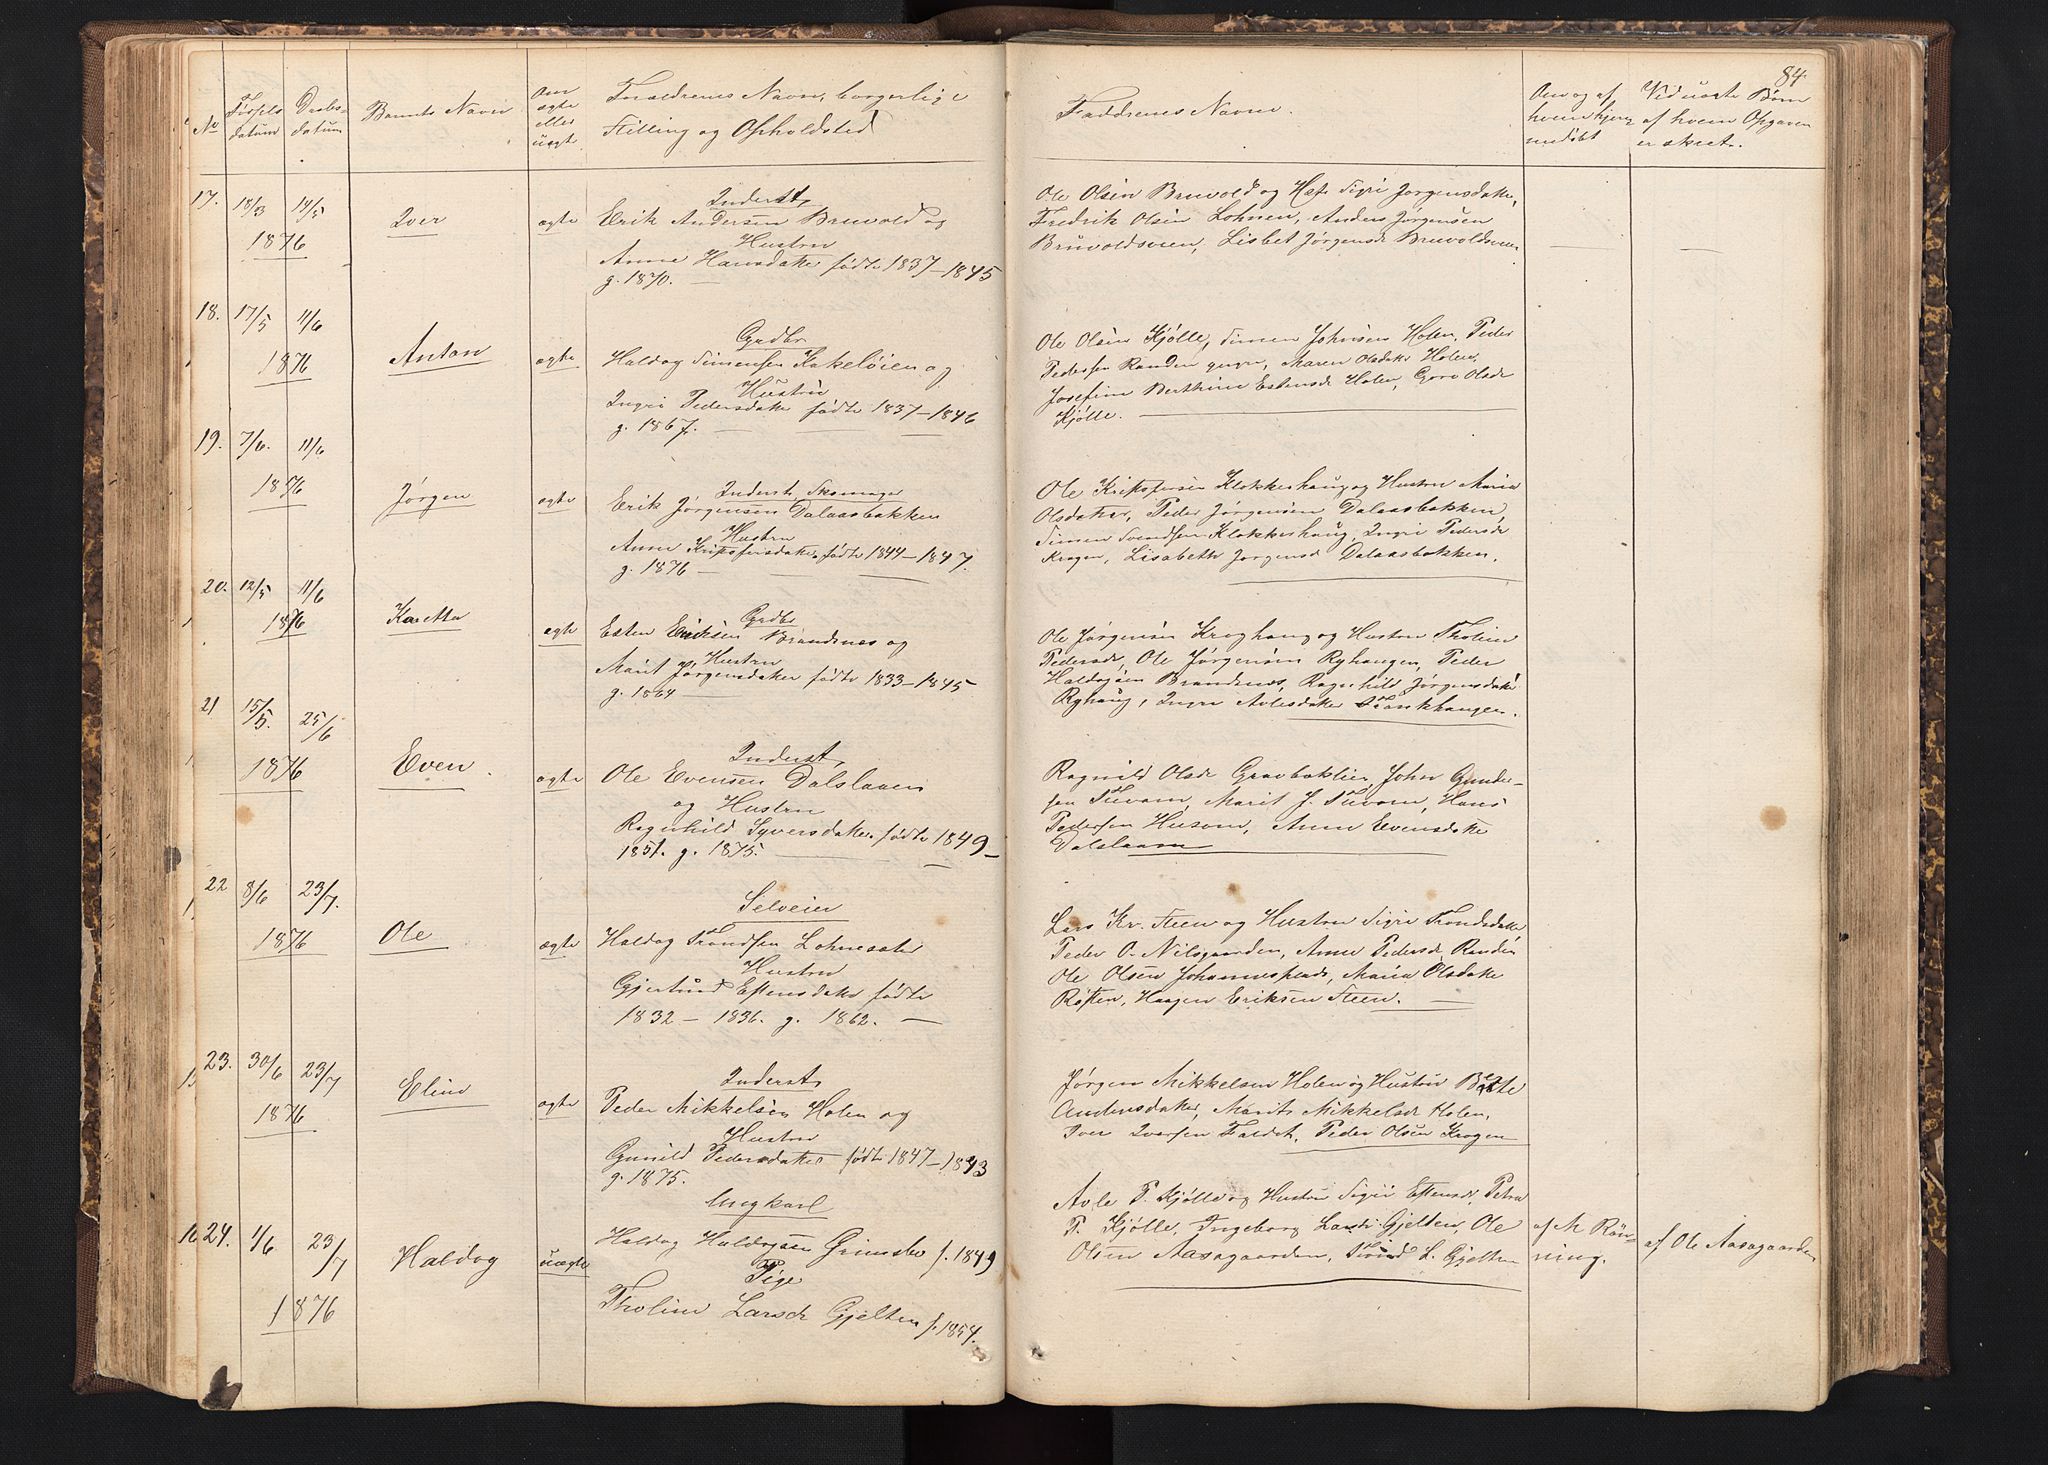 84.
No
Fødsels
datum
Daabs-
datum
Barnets Navn
Om
ægte
eller
uægte
Forældrenes Navn, borgerlige
Stilling og Opholdsted
Faddrenes Navne.
Om og af
hvem hjem-
medøbt
Ved uægte Børn
af hvem Opgaven
er skeet.
17. 18/3 14/5
1876
Iver
ægte
Inderst,
Erik Andersen Bruvold og
Hustru
Anne Hansdater fødte 1837 – 1845
g. 1870. —
Ole Olsen Bruvold og Hst. Sigri Jørgensdater,
Fredrik Olsen Lohnen, Anders Jørgensen
Bruvoldsveen, Lisbet Jørgensd. Bruvoldsveen
18. 17/5 11/6
1876
Anton
ægte
Grdbr
Haldog Simensen Kakeløien og
Hustru
Ingri Pedersdater fødte 1837 – 1846
g. 1867. —
Ole Olsen Kjølle, Simen Johnsen Holen, Peder
Pedersen Randen yngre, Maren Olsdater Holen,
Josefine Berthine Estensd. Holen, Goro Olsdr
Kjølle.
19. 7/6. 11/6
1876
Jørgen
ægte
Inderst, Skomager
Erik Jørgensen Dalaasbakken
Hustru
Anne Kristofersdater fødte 1844 – 1847.
g. 1876 —
Ole Kristofersen Klokkerhaug og Hustru Maria
Olsdater, Peder Jørgensen Dalaasbakken,
Simen Svendsen Klokkerhaug, Ingri Pedersdr
Krogen, Lisabeth Jørgensd. Dalaasbakken.
20. 12/5 11/6
1876
Karetta
ægte
Grdbr
Esten Eriksen Brandsnes og
Hustru
Marit Jørgensdater fødte 1833 – 1845
g. 1864
Ole Jørgensen Kroghaug og Hustru Tholine
Pedersdr, Ole Jørgensen Ryhaugen, Peder
Haldogsen Brandsnes, Ragnhild Jørgensdater
Ryhaug, Ingri Avlesdater
21 15/5. 25/6
1876
Even.
ægte
Inderst,
Ole Evensen Dalslaaen
og Hustru
Ragnhild Syversdater fødte 1849 –
1851. g. 1875.
Ragnild Olsdr Gravbakken, John Gunder-
sen Tuvam, Marit J. Tuvam, Hans
Pedersen Husom, Anne Evensdater
Dalslaaen
22 8/6 23/7.
1876
Ole
ægte
Selveier
Haldog Trondsen Lohnesater
Hustru
Gjertrud Estensdater fødte
1832 – 1836. g. 1862. —
Lars Kr. Steen og Hustru Sigri Trondsdatter
Peder O. Nilsgaarden, Anne Pedersdr Randen
Ole Olsen Johannesplads, Maria Olsdater
Røsten, Haagen Eriksen Steen. —
23. 30/6 23/7
1876
Eline
ægte
Inderst,
Peder Mikkelsen Holen og
Hustru
Gunild Pedersdater født 1847 – 1843
g. 1875.
Jørgen Mikkelsen Holen og Hustru Berte
Andersdater, Marit Mikkelsdr Holen,
Iver Iversen Faldet, Peder Olsen Krogen
24. 1/6 23/7
1876
Haldog
uægte
Ungkarl
Haldog Haldogsen Grimsbo f. 1849
Pige
Tholine Larsdr Gjelten f. 1854.
Avle P. Kjølle og Hustru Sigri Estensdr, Petra
P. Kjølle, Ingeborg Larsdr Gjelten, Ole
Olsen Aasagaarden, Trond L. Gjelten
af M Røn-
ning.
af Ole Aasagaarden